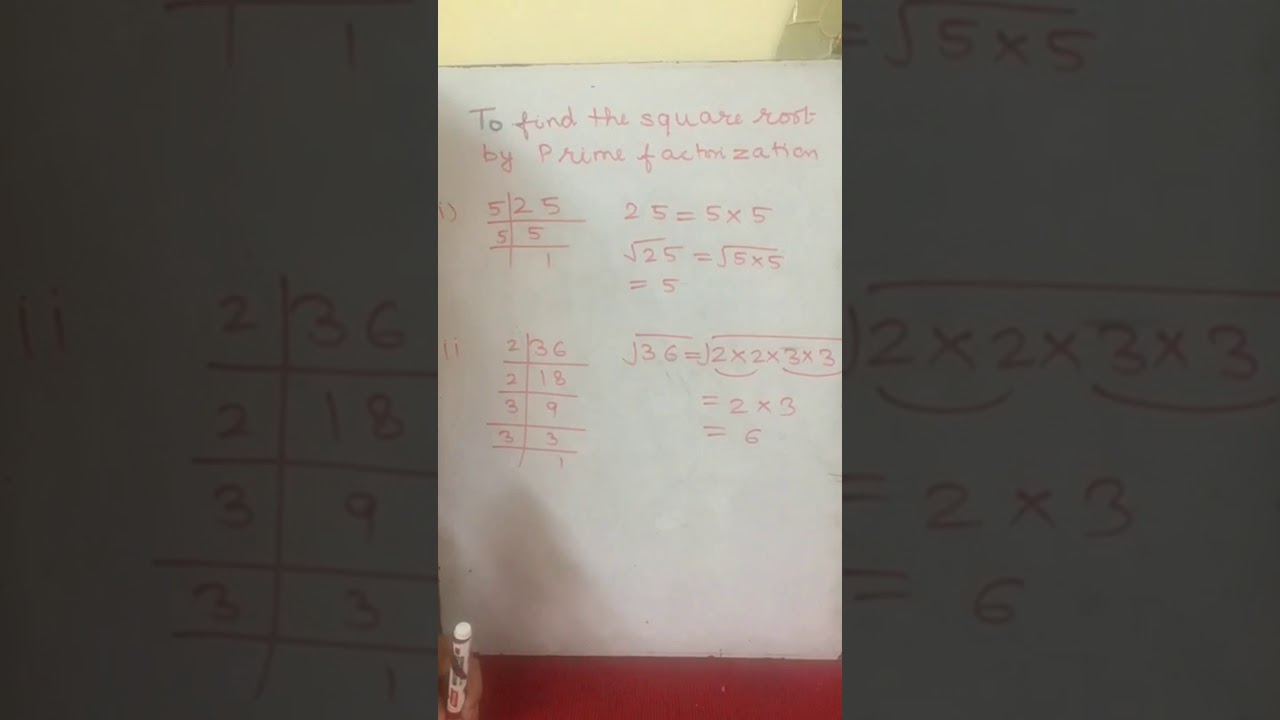 To find the square root
by Prime factorization
i) 5|25 25 = 5×5
5|5 √25 = √5×5
|1 = 5
ii 2|36 √36 = √2×2×3×3
2|18
3|9 = 2×3
3|3 = 6
|1